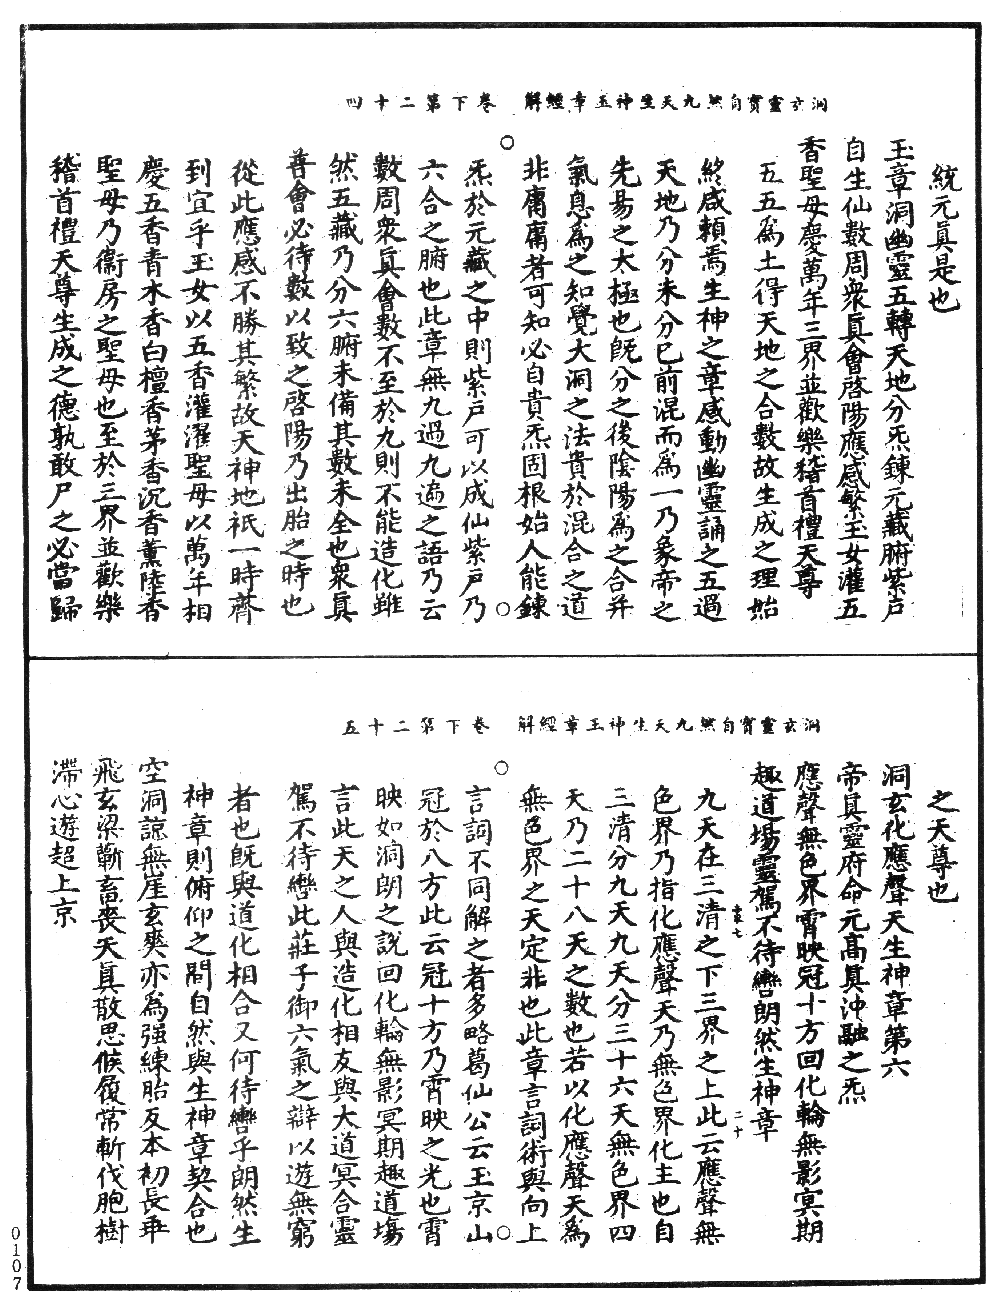 洞玄靈寳自然九天生神玉章經解　卷下第二十四
統元眞是也
玉章洞幽靈五轉天地分炁鍊元藏腑紫戸
自生仙數周衆眞會啓陽應感繁玉女灌五
香聖母慶萬年三界並歡樂稽首禮天尊
五五爲土得天地之合數故生成之理始
終咸頼焉生神之章感動幽靈誦之五過
天地乃分未分已前混而爲一乃象帝之
先易之太極也既分之後陰陽爲之合并
氣息爲之知覺大洞之法貴於混合之道
非庸庸者可知必自貴炁固根始人能鍊
炁於元藏之中則紫戸可以成仙紫戸乃
六合之腑也此章無九過九遍之語乃云
數周衆眞會數不至於九則不能造化雖
然五藏乃分六腑未備其數未全也衆眞
普會必待數以致之啓陽乃出胎之時也
從此應感不勝其繁故天神地祇一時齊
到宜乎玉女以五香灌濯聖母以萬年相
慶五香青木香白檀香茅香沉香薰陸香
聖母乃衞房之聖母也至於三界並歡樂
稽首禮天尊生成之德孰敢尸之必當歸
洞玄靈寳自然九天生神玉章經解　卷下第二十五
之天尊也
洞玄化應聲天生神章第六
帝眞靈府命元髙眞沖融之炁
應聲無色界霄映冠十方回化輪無影冥期
趣道場靈駕不待轡朗然生神章
九天在三清之下三界之上此云應聲無
色界乃指化應聲天乃無色界化主也自
三清分九天九天分三十六天無色界四
天乃二十八天之數也若以化應聲天爲
無色界之天定非也此章言詞術與向上
言詞不同解之者多略葛仙公云玉京山
冠於八方此云冠十方乃霄映之光也霄
映如洞朗之說回化輪無影冥期趣道塲
言此天之人與造化相友與大道冥合靈
駕不待轡此莊子御六氣之辯以遊無窮
者也既與道化相合又何待轡乎朗然生
神章則俯仰之間自然與生神章契合也
空洞諒無崖玄爽亦爲强練胎反本初長乖
飛玄梁蘄畜喪天眞散思候履常斬伐胞樹
滯心遊超上京
二十
0107